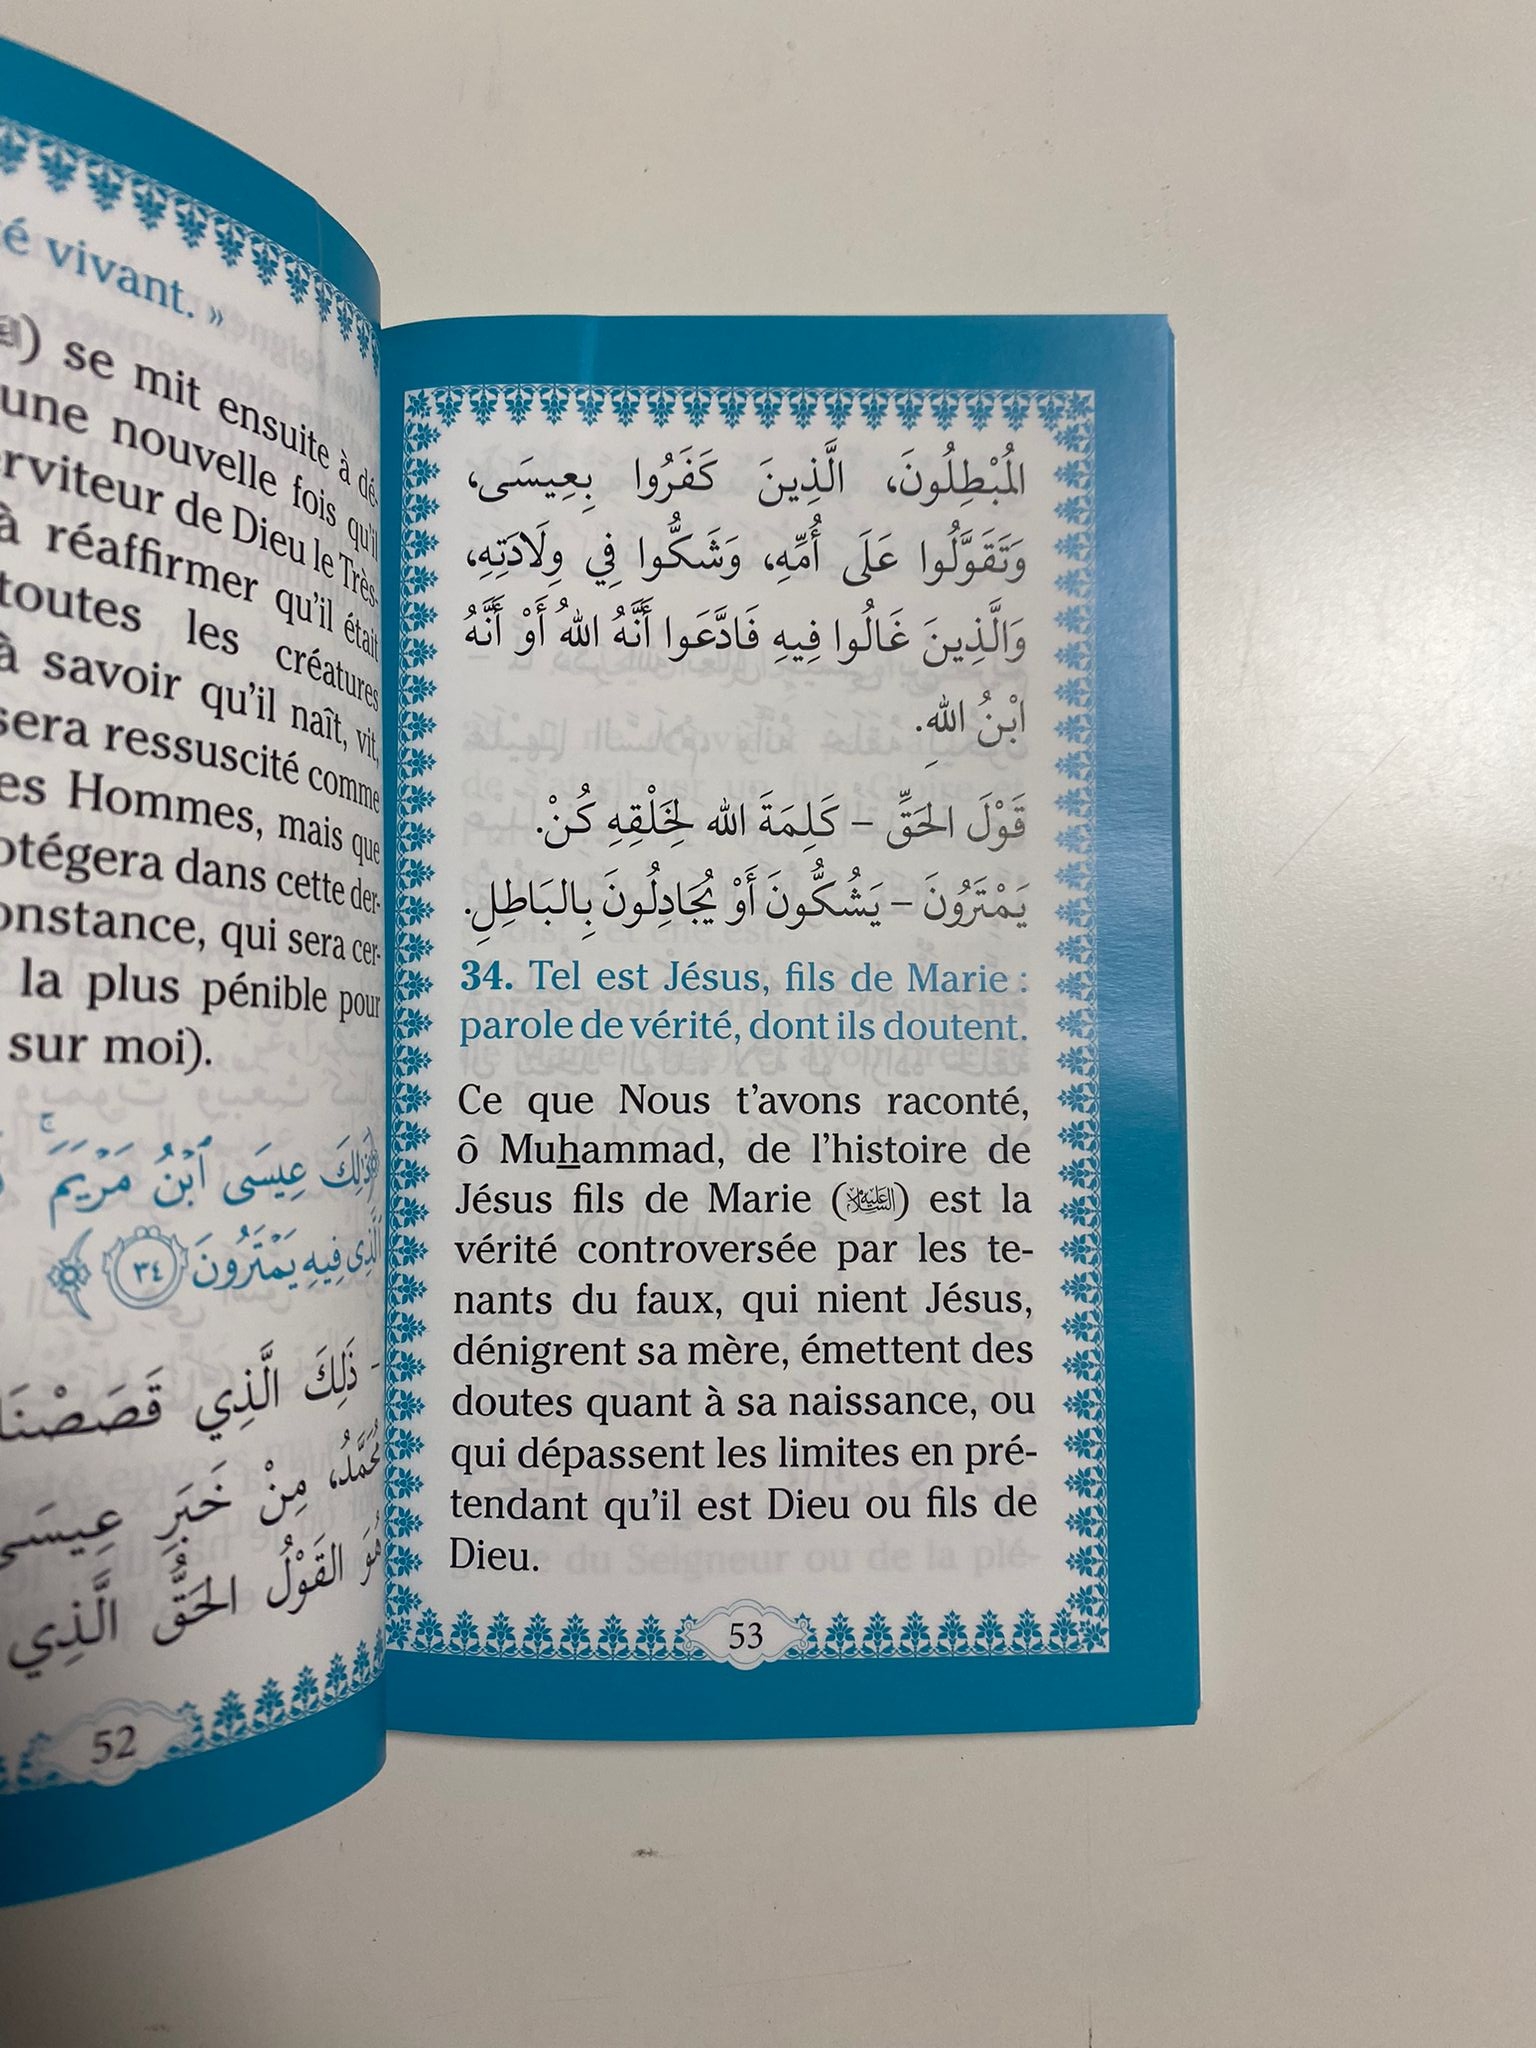 é vivant. »
) se mit ensuite à dé-
une nouvelle fois qu'il
erviteur de Dieu le Très-
à réaffirmer qu'il était
toutes les créatures
à savoir qu'il naît, vit,
sera ressuscité comme
es Hommes, mais que
otégera dans cette der-
onstance, qui sera cer-
la plus pénible pour
sur moi).
ذَٰلِكَ عِيسَى ٱبْنُ مَرْيَمَ ۚ
ٱلَّذِى فِيهِ يَمْتَرُونَ ٣٤
- ذَلِكَ الَّذِي قَصَصْنَا
مُحَمَّدُ، مِنْ خَبَرِ عِيسَى
هُوَ القَوْلُ الحَقُّ الَّذِي
52
المُبْطِلُونَ، الَّذِينَ كَفَرُوا بِعِيسَى،
وَتَقَوَّلُوا عَلَى أُمِّهِ، وَشَكُّوا فِي وِلَادَتِهِ،
وَالَّذِينَ غَالُوا فِيهِ فَادَّعَوا أَنَّهُ اللهُ أَوْ أَنَّهُ
ابْنُ اللهِ.
قَوْلَ الحَقِّ – كَلِمَةَ الله لِخَلْقِهِ كُنْ.
يَمْتَرُونَ – يَشُكُّونَ أَوْ يُجَادِلُونَ بِالبَاطِلِ.
34. Tel est Jésus, fils de Marie :
parole de vérité, dont ils doutent.
Ce que Nous t'avons raconté,
ô Muhammad, de l'histoire de
Jésus fils de Marie (عليه السلام) est la
vérité controversée par les te-
nants du faux, qui nient Jésus,
dénigrent sa mère, émettent des
doutes quant à sa naissance, ou
qui dépassent les limites en pré-
tendant qu'il est Dieu ou fils de
Dieu.
53